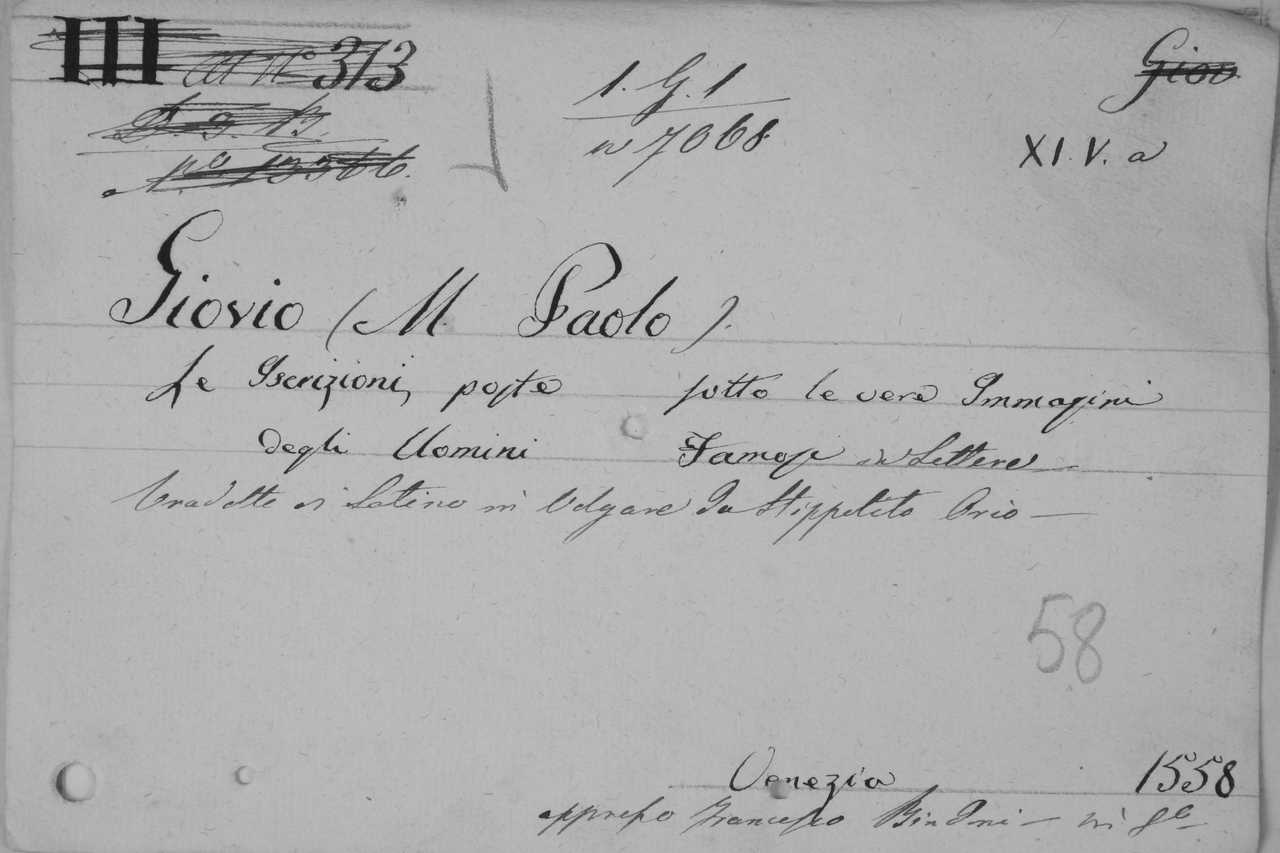 III 313
1. G. 1
n 7068
Giov
XI. V. a
Giovio (M. Paolo).
Le Iscrizioni, poste sotto le vere Immagini
degli Uomini Famosi in Lettere
tradotte di Latino in Volgare da Hippolito Orio
58
Venezia 1558
appresso Francesco Bindoni in 8º